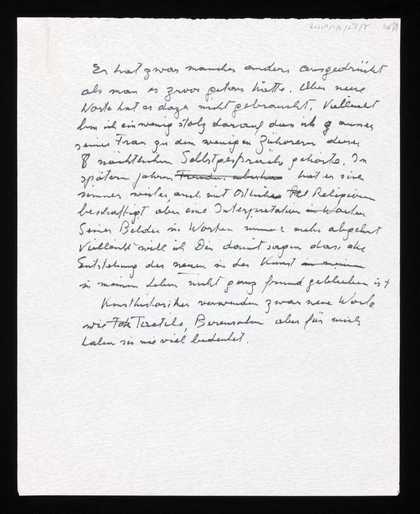 Er hat zwar manches anders ausgedrückt
als man es zuvor getan hatte. Aber neue
Worte hat er dazu nicht gebraucht. Vielleicht
bin ich ein wenig stolz darauf dass ich
seiner Frau zu den wenigen Zuhörern dieser
nächtlichen Selbstgespräche gehörte. In
spätern Jahren hat er sich
immer weiter auch mit Religionen
beschäftigt aber eine Interpretation in Worten
Seiner Bilder in Worten immer mehr abgelehnt
Vielleicht will ich Dir damit sagen dass die
Entstehung des neuen in der Kunst
in meinem Leben nicht ganz fremd geblieben ist
Kunsthistoriker verwenden zwar neue Worte
wie aber für mich
haben sie nie viel bedeutet.